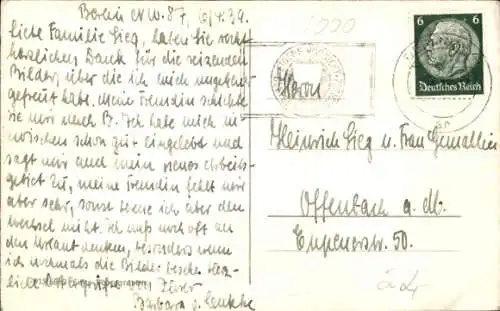 Berlin NW. 87, 6/4.39.
Liebe Familie Sieg, haben Sie recht
herzlichen Dank für die reizenden
Bilder, über die ich mich ungeheuer
gefreut habe. Meine Freundin schickte
sie mir nach B. Ich habe mich in-
zwischen schon gut eingelebt und
sagt mir auch mein neues Arbeits-
gebiet zu, meine Freundin fehlt mir
aber sehr, sonst ich aber den
Wechsel nicht. Ich muß noch oft an
den Urlaub denken, besonders wenn
ich nochmals die Bilder besehe. Herz-
liche Ostergrüße von Ihrer
Barbara v.
1990
6 6
Deutsches Reich
Herrn
Heinrich Sieg u. Frau Gemahlin
Offenbach a. M.
Eupenerstr. 50.